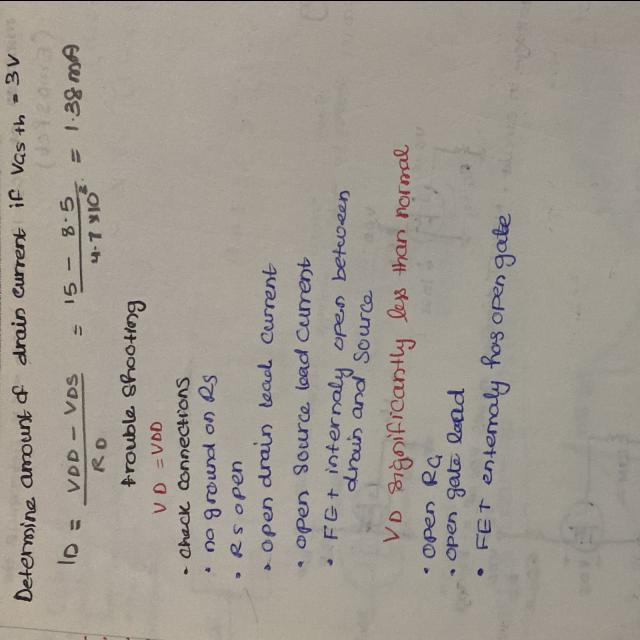 Determine amount of drain current if VGSth = 3V
ID = VDD - VDS / RD = 15 - 8.5 / 4.7 x10³ = 1.38 mA
trouble shooting
VD = VDD
• check connections
• no ground on RS
• RS open
• open drain lead current
• open source lead current
• FET internaly open between
drain and source
VD significantly less than normal
• open RG
• open gate lead
• FET enternaly has open gate